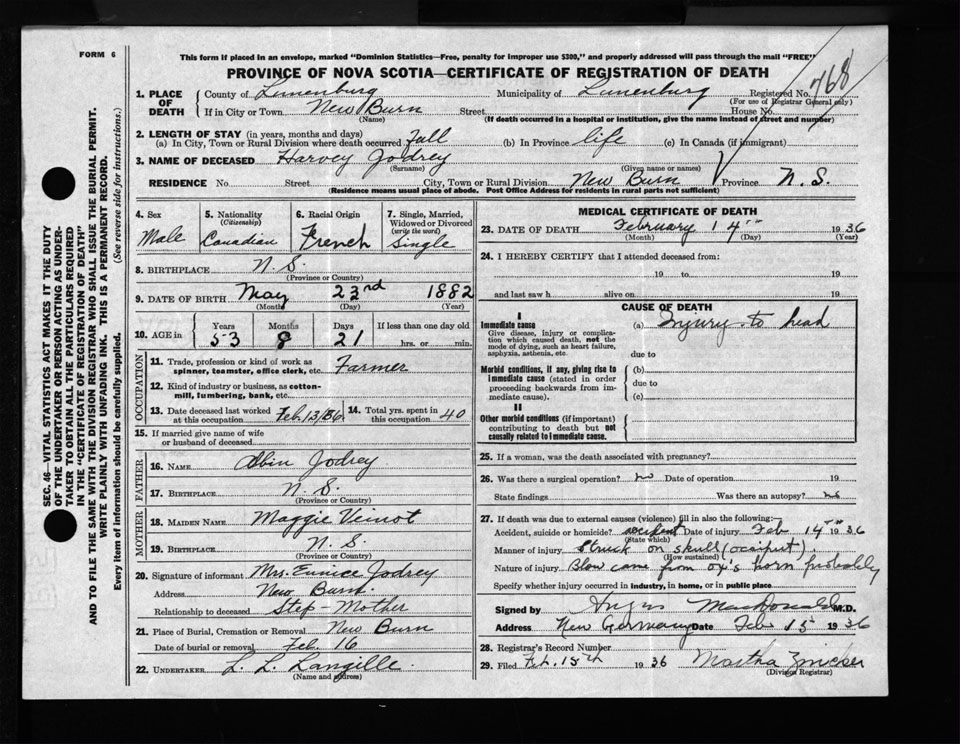 FORM 6
This form if placed in an envelope, marked "Dominion Statistics—Free, penalty for improper use $300," and properly addressed will pass through the mail "FREE"
PROVINCE OF NOVA SCOTIA—CERTIFICATE OF REGISTRATION OF DEATH
768
1. PLACE OF DEATH County of Lunenburg Municipality of Lunenburg Registered No.
(For use of Registrar General only)
If in City or Town New Burn Street House No.
(Name) (If death occurred in a hospital or institution, give the name instead of street and number)
2. LENGTH OF STAY (in years, months and days)
(a) In City, Town or Rural Division where death occurred Full (b) In Province life (c) In Canada (if immigrant)
3. NAME OF DECEASED Harvey Jodrey
(Surname) (Given name or names)
RESIDENCE No. Street City, Town or Rural Division New Burn Province N. S.
(Residence means usual place of abode. Post Office Address for residents in rural parts not sufficient)
4. Sex Male
5. Nationality (Citizenship) Canadian
6. Racial Origin French
7. Single, Married, Widowed or Divorced (write the word) Single
8. BIRTHPLACE N. S.
(Province or Country)
9. DATE OF BIRTH May 23rd 1882
(Month) (Day) (Year)
10. AGE in Years 53 Months 8 Days 21 If less than one day old hrs. or min.
OCCUPATION
11. Trade, profession or kind of work as spinner, teamster, office clerk, etc. Farmer
12. Kind of industry or business, as cotton-mill, lumbering, bank, etc.
13. Date deceased last worked at this occupation Feb. 13/36
14. Total yrs. spent in this occupation 40
15. If married give name of wife or husband of deceased
FATHER
16. NAME Albin Jodrey
17. BIRTHPLACE N. S.
(Province or Country)
MOTHER
18. MAIDEN NAME Maggie Veinot
19. BIRTHPLACE N. S.
(Province or Country)
20. Signature of informant Mrs. Eunice Jodrey
Address New Burn.
Relationship to deceased Step-Mother
21. Place of Burial, Cremation or Removal New Burn
Date of burial or removal Feb. 16
22. UNDERTAKER L. L. Langille.
(Name and address)
MEDICAL CERTIFICATE OF DEATH
23. DATE OF DEATH February 14th 1936
(Month) (Day) (Year)
24. I HEREBY CERTIFY that I attended deceased from:
19 to 19
and last saw h alive on 19
CAUSE OF DEATH
I
Immediate cause
Give disease, injury or complication which caused death, not the mode of dying, such as heart failure, asphyxia, asthenia, etc.
(a) Injury to head
due to
Morbid conditions, if any, giving rise to immediate cause (stated in order proceeding backwards from immediate cause).
(b)
due to
(c)
II
Other morbid conditions (if important) contributing to death but not causally related to immediate cause.
25. If a woman, was the death associated with pregnancy?
26. Was there a surgical operation? no Date of operation 19
State findings Was there an autopsy? no
27. If death was due to external causes (violence) fill in also the following:—
Accident, suicide or homicide? accident Date of injury Feb 14th 1936
(State which)
Manner of injury Struck on skull (occiput).
(How sustained)
Nature of injury Blow came from ox's horn probably
Specify whether injury occurred in industry, in home, or in public place
Signed by Angus MacDonald M.D.
Address New Germany Date Feb 15 1936
28. Registrar's Record Number
29. Filed Feb. 15th 1936 Martha Zwicker
(Division Registrar)
SEC. 46—VITAL STATISTICS ACT MAKES IT THE DUTY OF THE UNDERTAKER OR PERSON ACTING AS UNDERTAKER TO OBTAIN ALL THE PARTICULARS REQUIRED IN THE "CERTIFICATE OF REGISTRATION OF DEATH"
AND TO FILE THE SAME WITH THE DIVISION REGISTRAR WHO SHALL ISSUE THE BURIAL PERMIT.
WRITE PLAINLY WITH UNFADING INK. THIS IS A PERMANENT RECORD.
Every item of information should be carefully supplied. (See reverse side for instructions.)